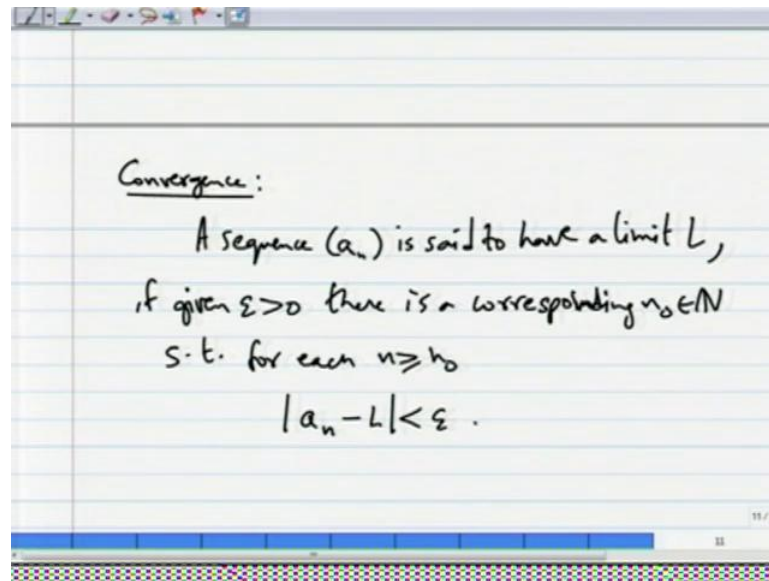 Convergence:
A sequence (aₙ) is said to have a limit L,
if given ε>0 there is a corresponding n₀∈ℕ
s.t. for each n≥n₀
|aₙ-L|<ε.
11/
11